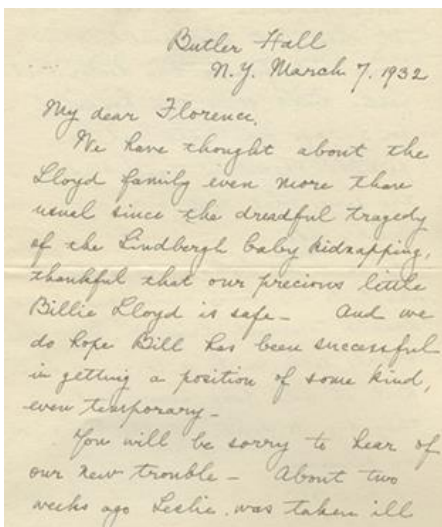 Butler Hall
N.Y. March 7, 1932
My dear Florence,
We have thought about the
Lloyd family even more than
usual since the dreadful tragedy
of the Lindbergh baby kidnapping,
thankful that our precious little
Billie Lloyd is safe – And we
do hope Bill has been successful
in getting a position of some kind,
even temporary –
You will be sorry to hear of
our new trouble – About two
weeks ago Leslie was taken ill